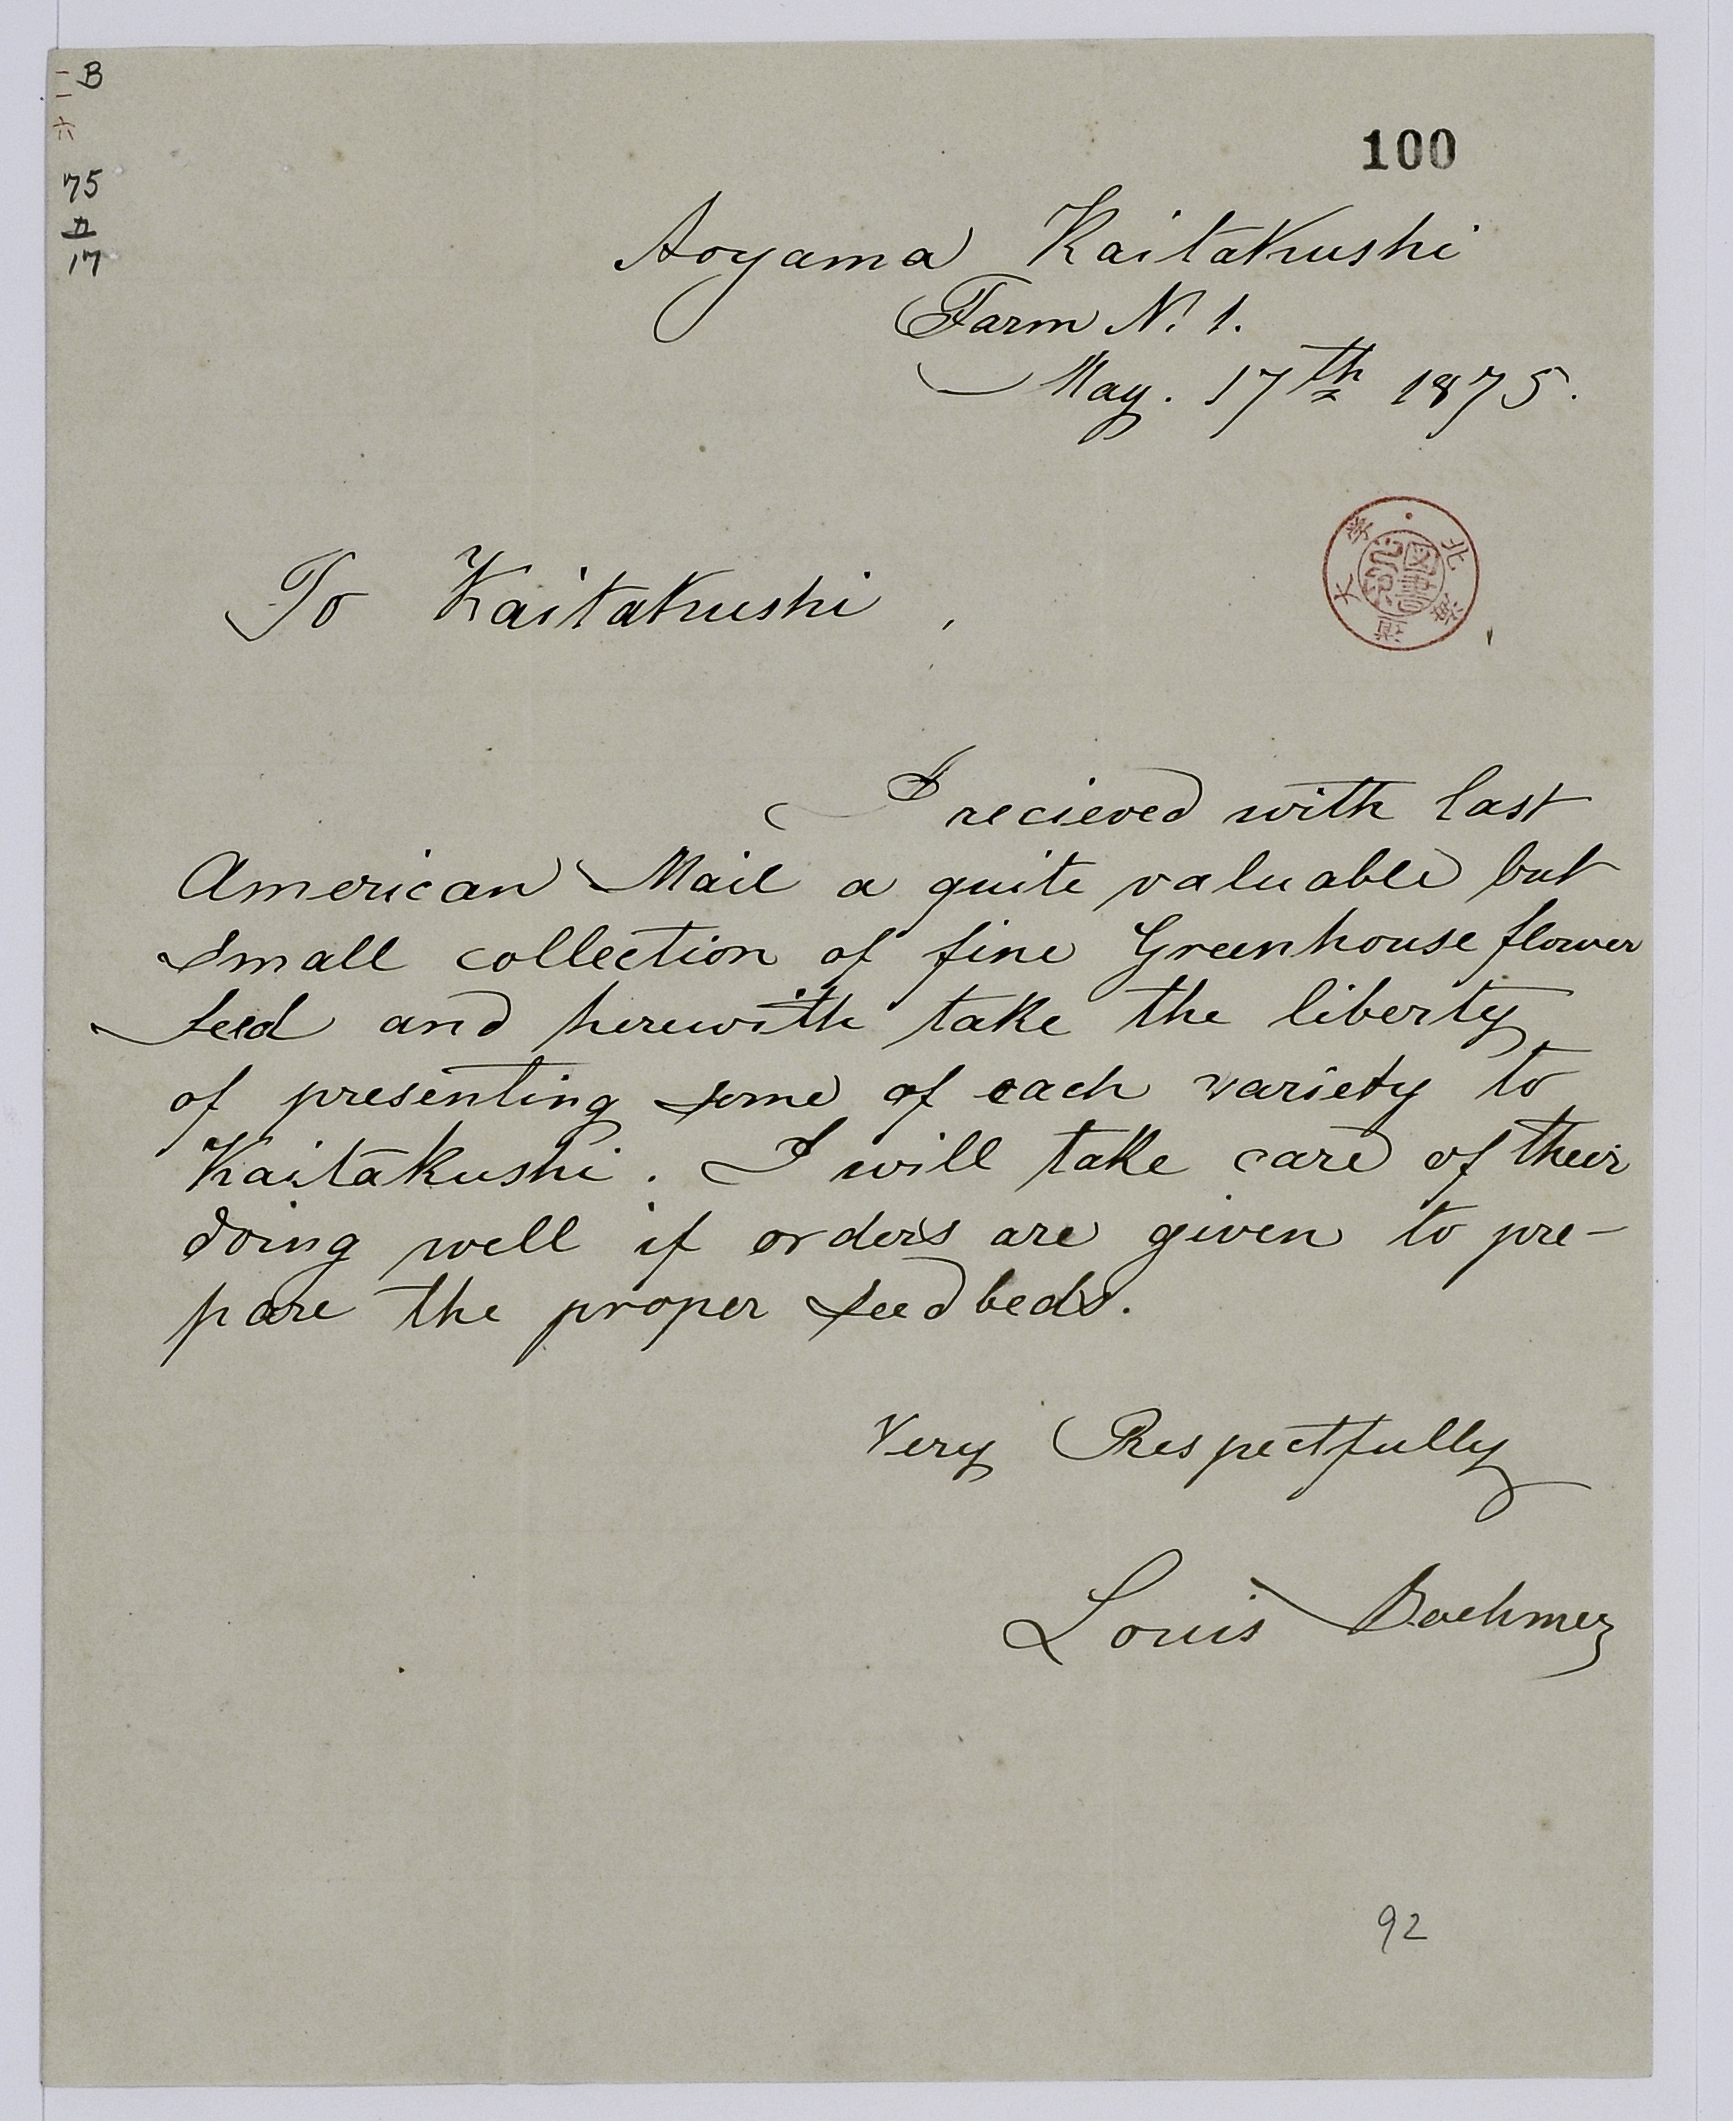 B
二六
75
17
100
Aoyama Kaitakushi
Farm N. 1.
May. 17th 1875.
北海道大学
図書
To Kaitakushi,
I recieved with last
American Mail a quite valuable but
small collection of fine Greenhouse flower
seed and herewith take the liberty
of presenting some of each variety to
Kaitakushi. I will take care of their
doing well if orders are given to pre-
pare the proper seedbeds.
Very Respectfully
Louis Boehmer
92